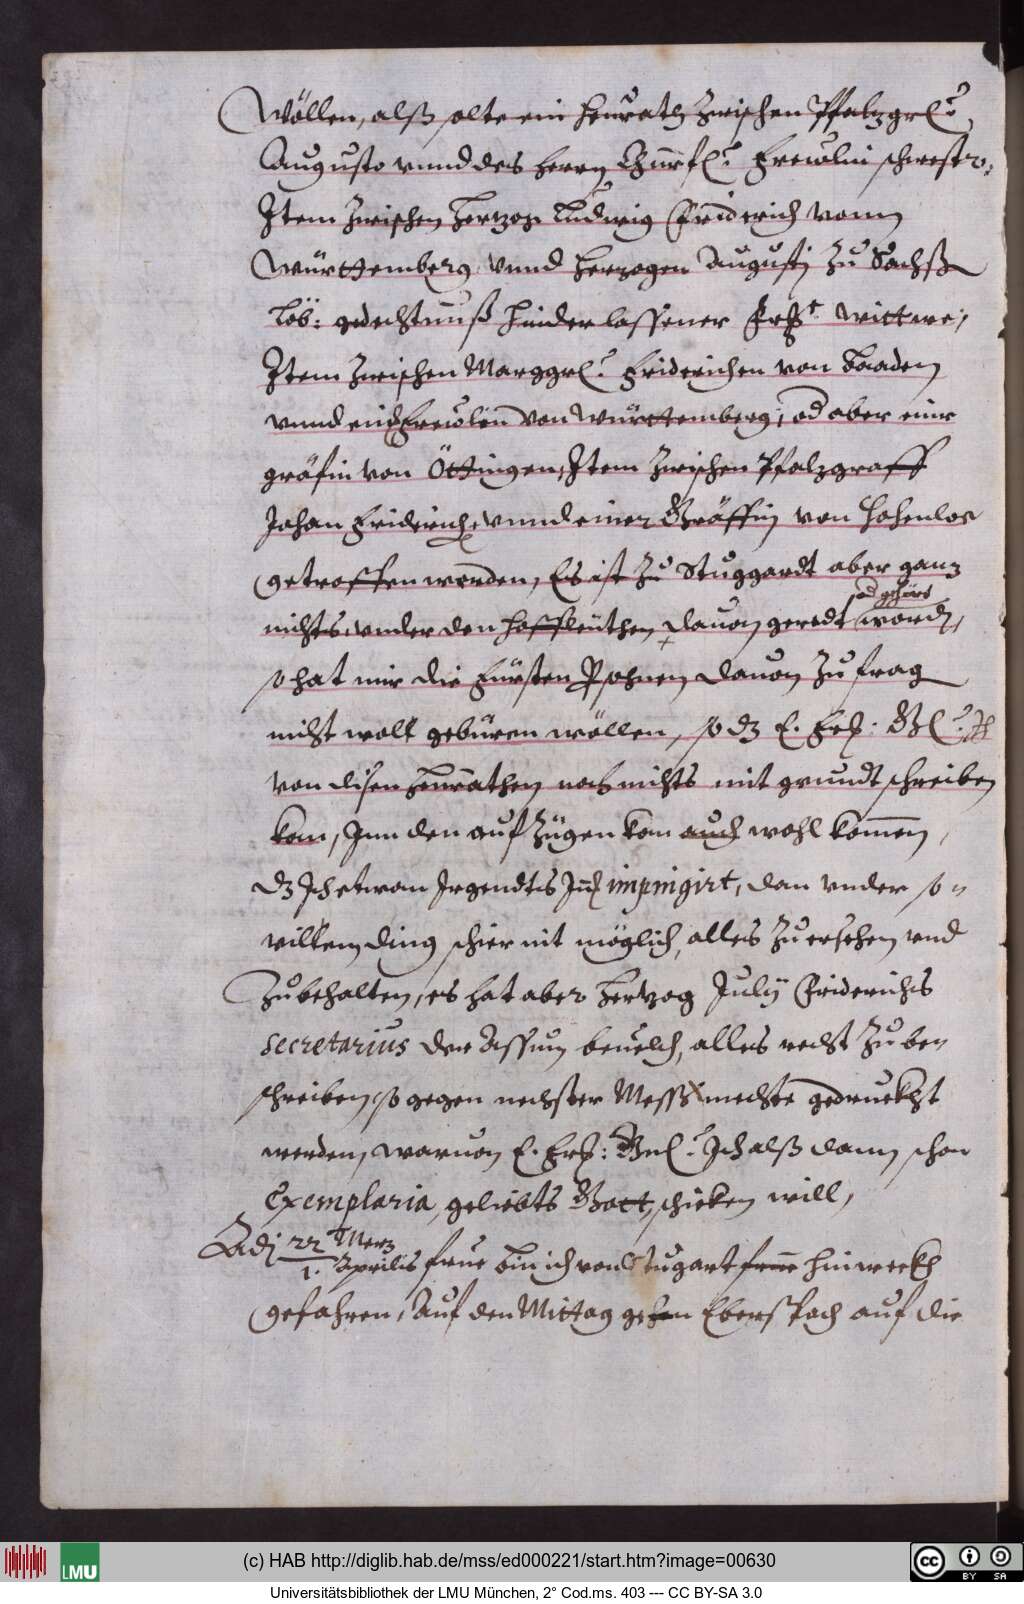 Wöllen, alß solte ein heurath zwischen Pfalzgr:
Augusto vnnd des herrn Churf: Frewlin schwester:
Item zwischen Hertzog Ludwig Friderich vonn
Württemberg, vnnd herzogen Augusti zu Sachßen
Löb: gedechtnuß hinderlassener Frh: Wittwe;
Item zwischen Marggr: Friderichen von Baaden
vnnd eim Frewlin von Württemberg, od aber einr
gräfin von Öttingen, Item zwischen Pfalzgraff
Johan Friderich, vnnd einer Gräffin von Hohenloe
getroffen worden, Es ist zu Stuggardt aber ganz
nichts, vnder den Hoffleuthen, dauon geredt od gehört word,
so hat mir die Fürsten Psohnen dauon zu frag
nicht woll gebüren wöllen, so dz E. Frh: Gl:
von disen Heurathen noch nichts mit grundt schreiben
kan, Inn den aufzügen kan auch wohl komen,
dz Ich etwan Irgendts Inn impingirt, dan vnder so
villem ding schier nit möglich, alles zu ersehen vnd
Zubehalten, es hat aber Hertzog Julij Friderichs
secretarius der Assum beuelch, alles recht zu be-
schreiben, so gegen nechster Mess mechte gedruckht
werden, waruon E. Frh: Gnl: Ich alß dann schon
Exemplaria, geliebts Gott, schicken will,
Adj 22 t Merz
1. Aprilis frue bin ich von Stugart frue hinweckh
gefahren, Auf den Mittag gehen Eberspach auf die
(c) HAB http://diglib.hab.de/mss/ed000221/start.htm?image=00630
LMU
BY SA
Universitätsbibliothek der LMU München, 2° Cod.ms. 403 --- CC BY-SA 3.0